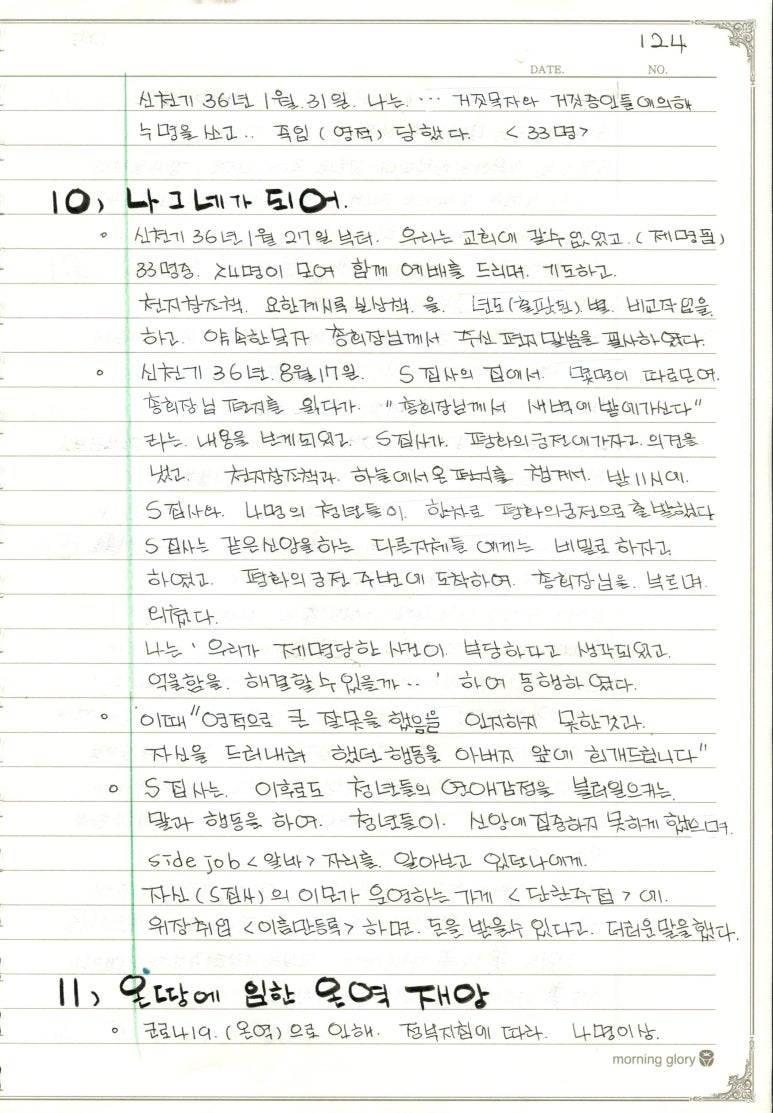 124
DATE. NO.
신천기 36년 1월. 31일. 나는. … 거짓목자와 거짓증인들에의해
누명을 쓰고.. 죽임 (영적) 당했다. < 33명>
10, 나그네가 되어.
◦ 신천기 36년 1월 27일 부터. 우리는 교회에 갈수 없었고. (제명됨)
33명중. 24명이 모여 함께 예배를 드리며. 기도하고.
천지창조책. 요한계시록 실상책. 을. 년도(출판된). 별. 비교작업을.
하고. 약속한목자 총회장님께서 주신 편지말씀을 필사하였다.
◦ 신천기 36년. 8월 17일. S집사의 집에서. 몇명이 따로모여.
총회장님 편지를 읽다가. "총회장님께서 새벽에 밭에가신다"
라는. 내용을 보게되었고. S집사가. 평화의궁전에가자고. 의견을
냈고. 천지창조책과. 하늘에서온 편지를 챙겨서. 밤 11시에.
S집사와. 4명의 청년들이. 한차로 평화의궁전으로 출발했다
S집사는 같은신앙을하는 다른지체들 에게는 비밀로 하자고.
하였고. 평화의궁전 주변에 도착하여. 총회장님을. 부르며.
외쳤다.
나는 ' 우리가 제명당한 사건이. 부당하다고 생각되었고.
억울함을. 해결할수 있을까‥ ' 하여 동행하였다.
◦ 이때 "영적으로 큰 잘못을 했음을 인지하지 못한것과.
자신을 드러내려 했던 행동을 아버지 앞에 회개드립니다"
◦ S집사는. 이후로도 청년들의 연애감정을 불러일으키는.
말과 행동을 하여. 청년들이. 신앙에 집중하지 못하게 했으며.
side job <알바> 자리를. 알아보고 있던나에게.
자신(S집사)의 이모가 운영하는 가게 < 단한주점 > 에.
위장취업 <이름만등록> 하면. 돈을 받을수 있다고. 더러운말을했다.
11, 온땅에 임한 온역 재앙
◦ 코로나19. (온역)으로 인해. 정부지침에 따라. 4명이상.
morning glory